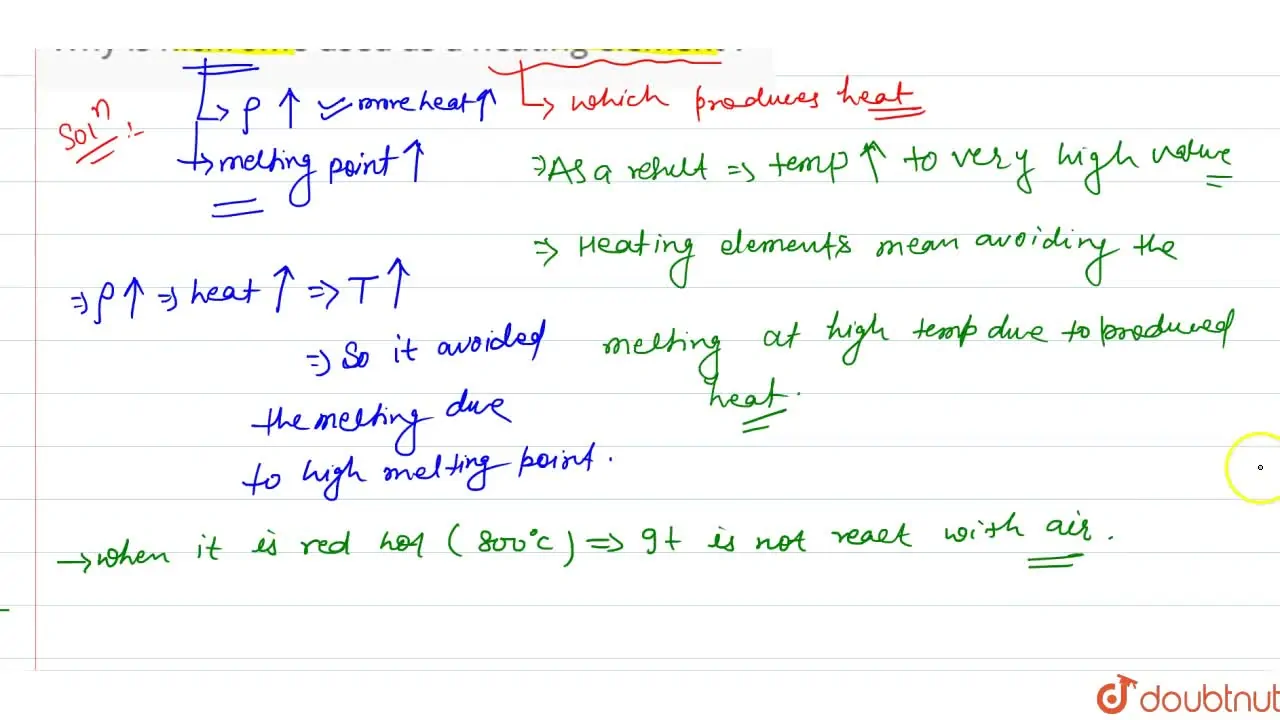 Why is nichrome used as a heating element?
Solⁿ :-
↳ ρ ↑ ✓ more heat ↑
↳ which produces heat
↳ melting point ↑
⇒ As a result ⇒ temp ↑ to very high value
⇒ Heating elements mean avoiding the
melting at high temp due to produced
heat.
⇒ ρ ↑ ⇒ heat ↑ ⇒ T ↑
⇒ So it avoided
the melting due
to high melting point.
→ when it is red hot (800°C) ⇒ It is not react with air.
doubtnut